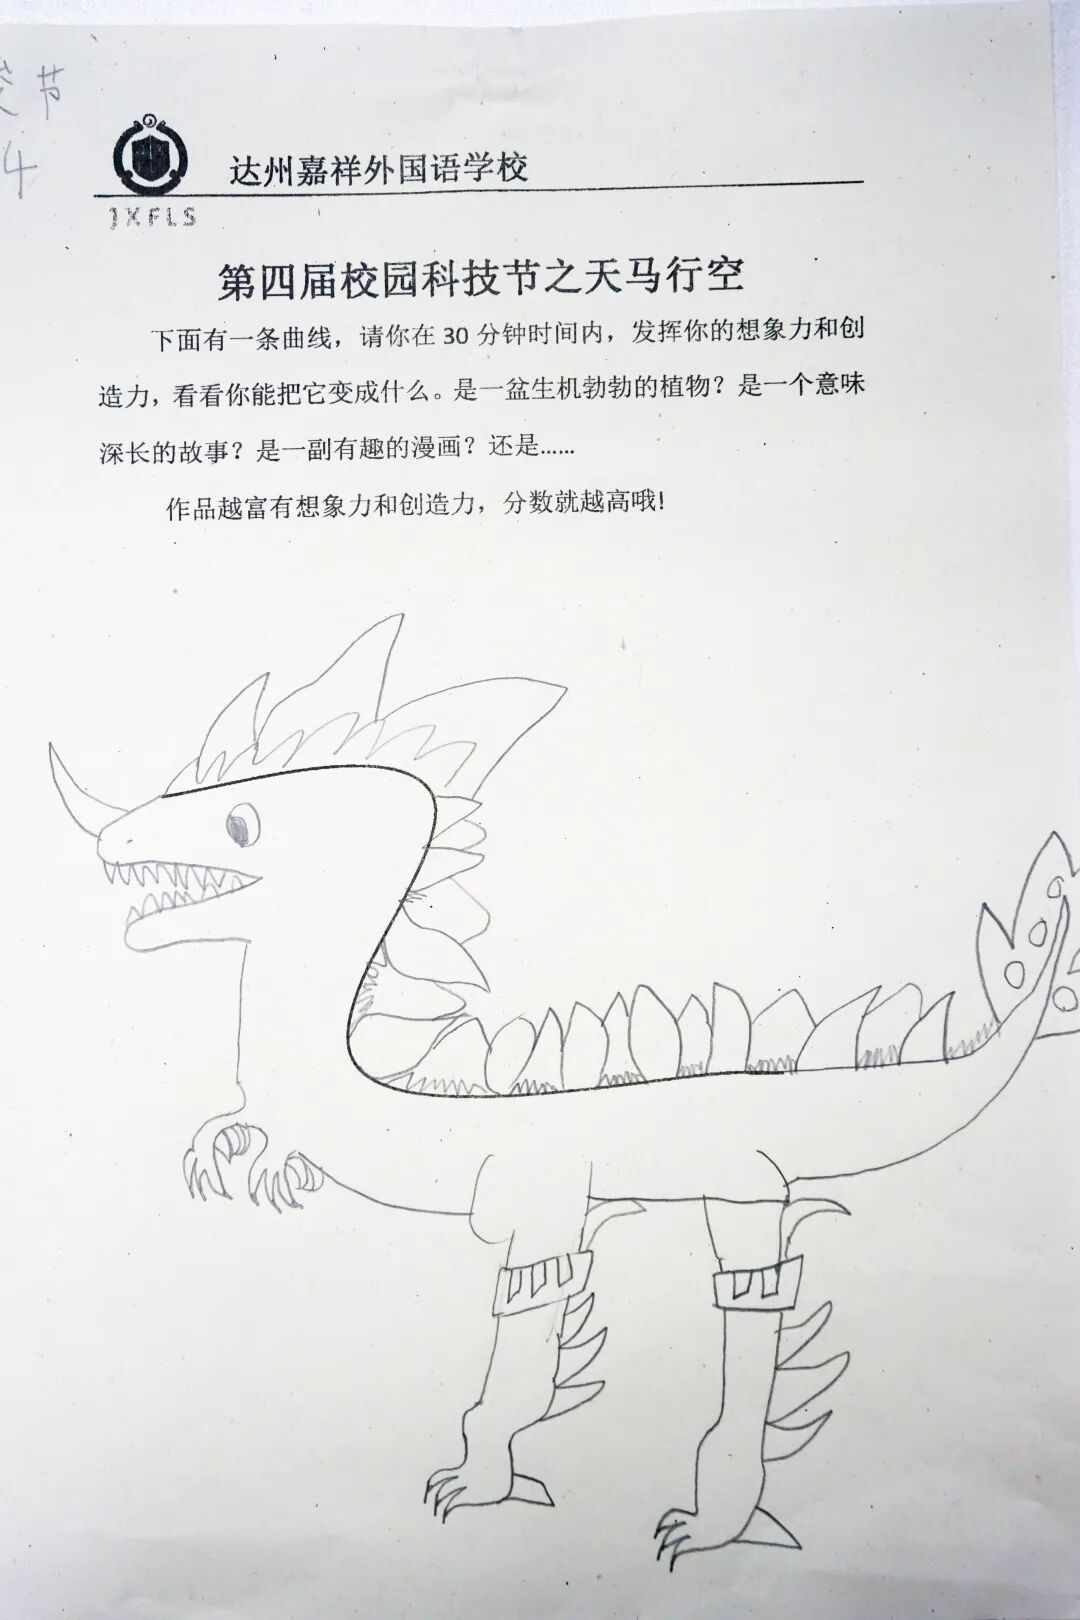 节
4
达州嘉祥外国语学校
JXFLS
第四届校园科技节之天马行空
下面有一条曲线，请你在 30 分钟时间内，发挥你的想象力和创
造力，看看你能把它变成什么。是一盆生机勃勃的植物？是一个意味
深长的故事？是一副有趣的漫画？还是……
作品越富有想象力和创造力，分数就越高哦！